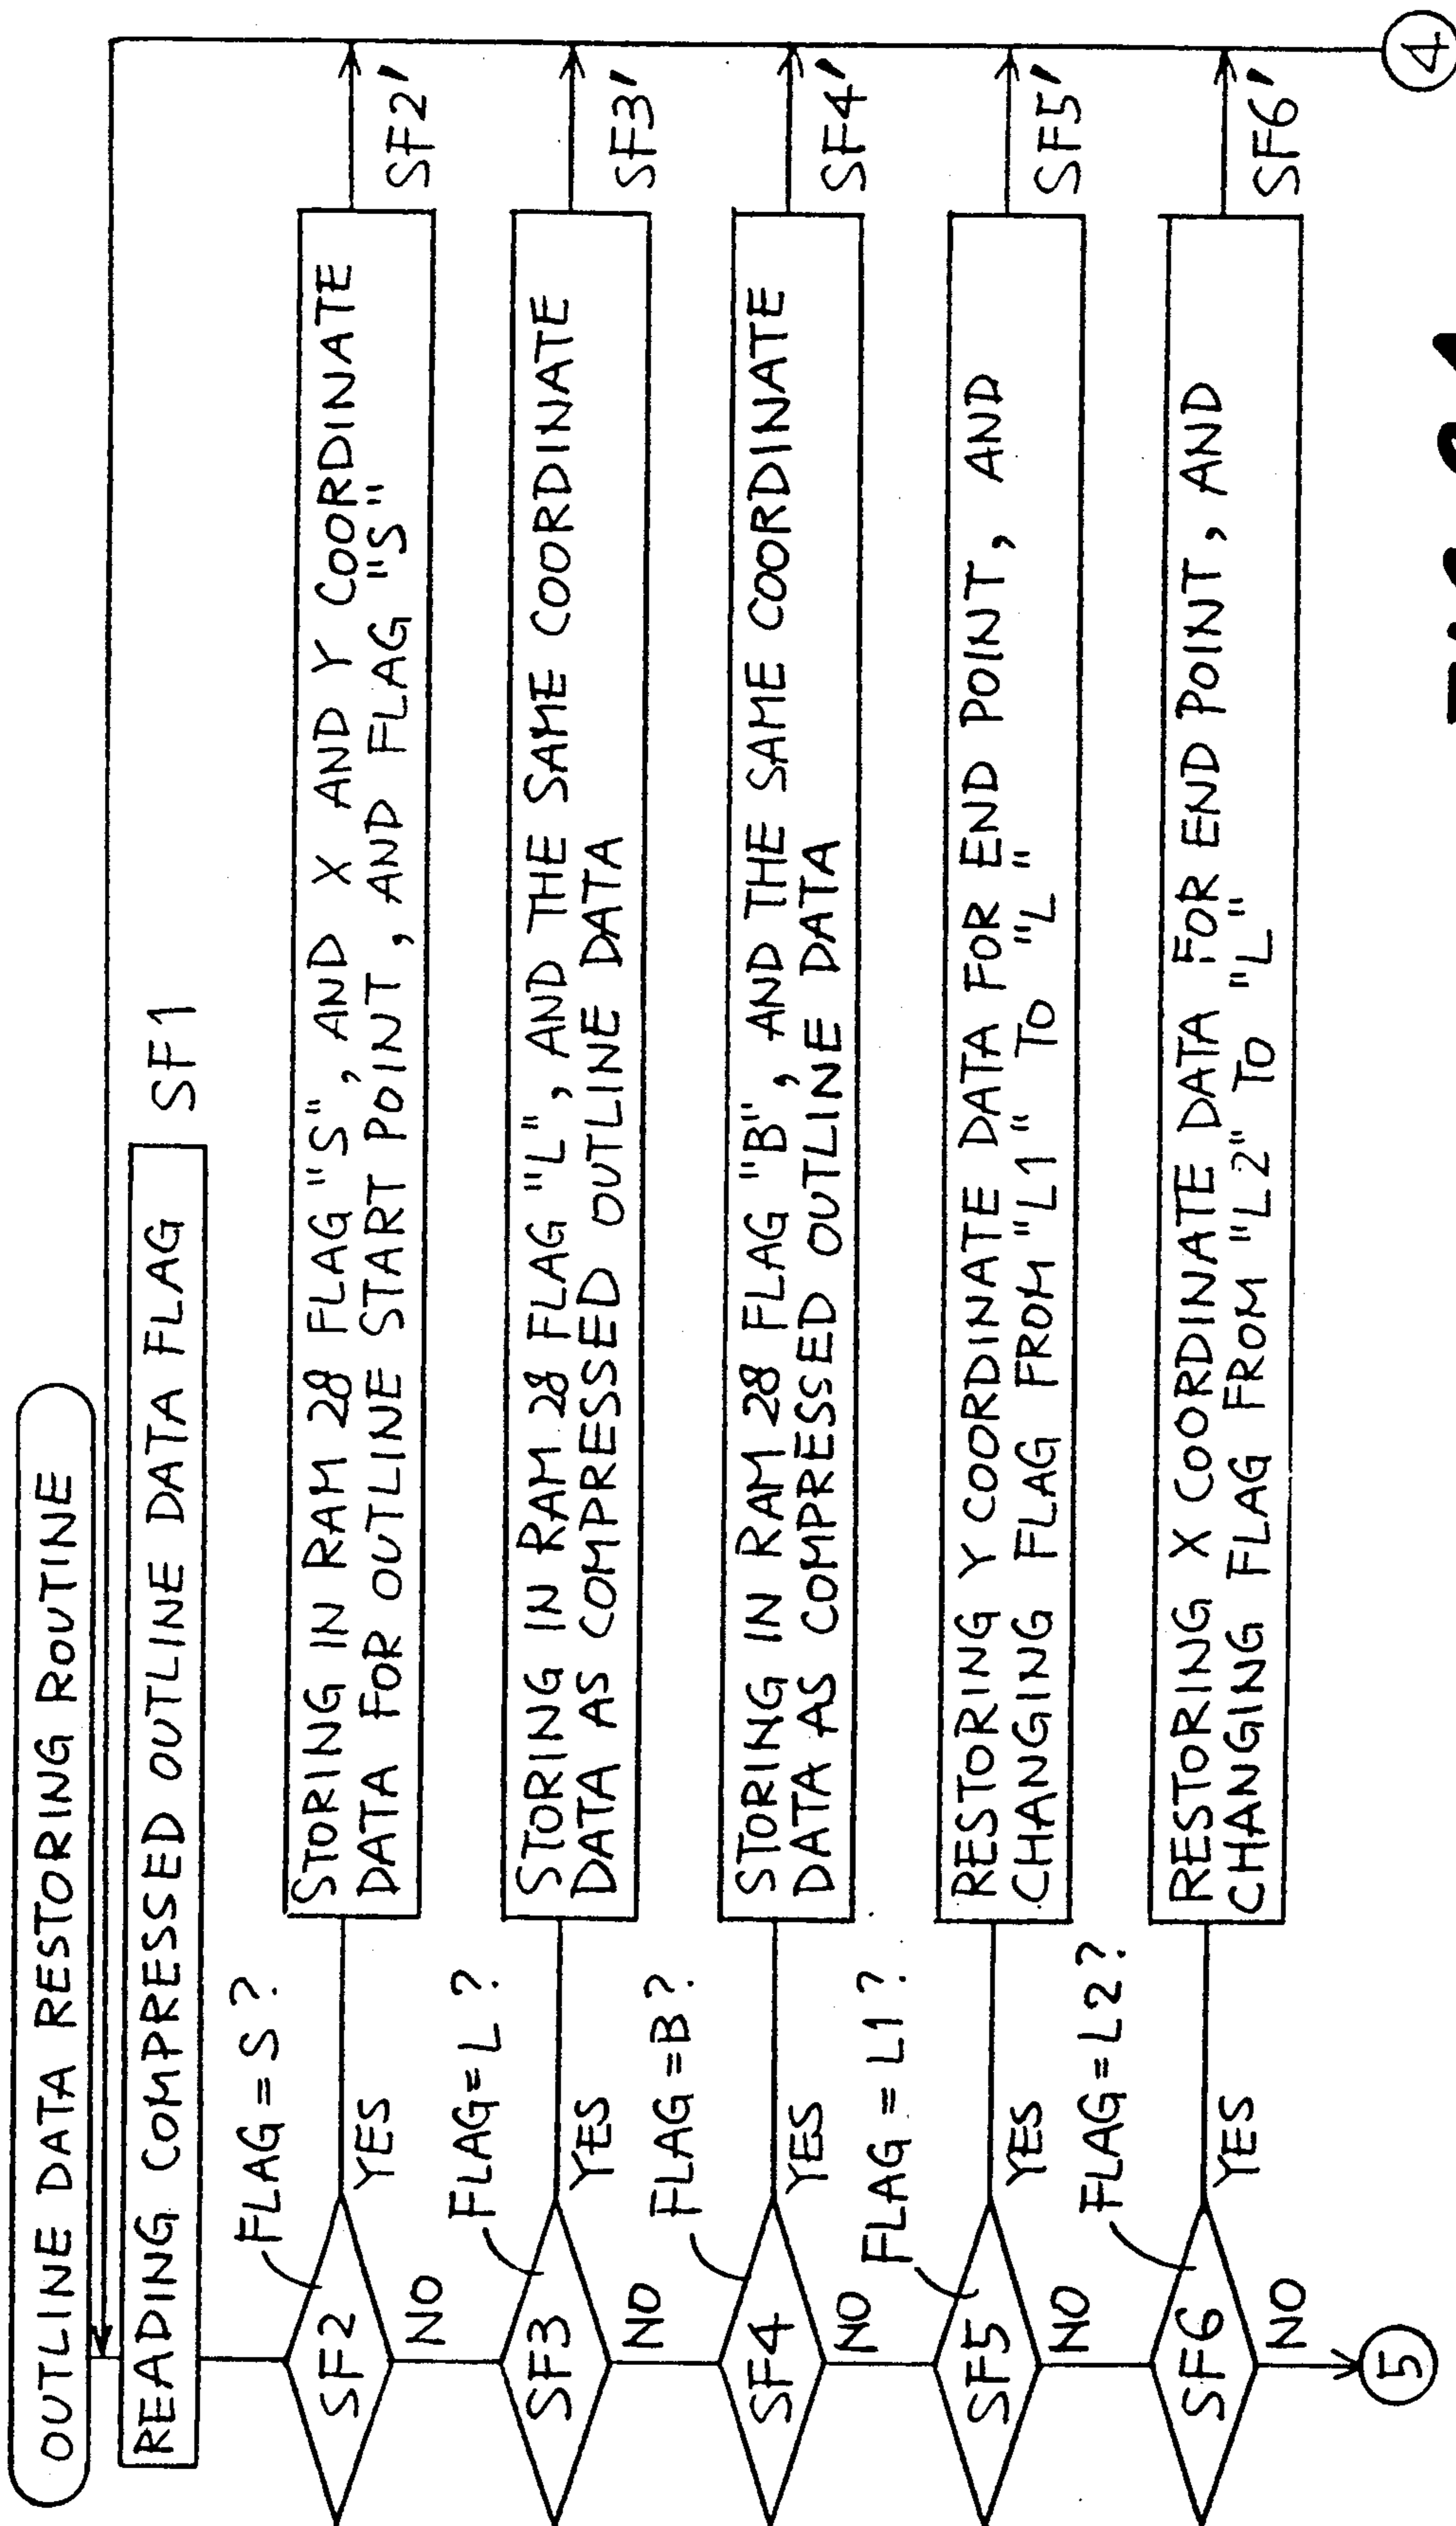 OUTLINE DATA RESTORING ROUTINE
READING COMPRESSED OUTLINE DATA FLAG
SF1
FLAG=S?
SF2
YES
NO
STORING IN RAM 28 FLAG "S", AND X AND Y COORDINATE
DATA FOR OUTLINE START POINT, AND FLAG "S"
SF2'
FLAG=L?
SF3
YES
NO
STORING IN RAM 28 FLAG "L", AND THE SAME COORDINATE
DATA AS COMPRESSED OUTLINE DATA
SF3'
FLAG=B?
SF4
YES
NO
STORING IN RAM 28 FLAG "B", AND THE SAME COORDINATE
DATA AS COMPRESSED OUTLINE DATA
SF4'
FLAG=L1?
SF5
YES
NO
RESTORING Y COORDINATE DATA FOR END POINT, AND
CHANGING FLAG FROM "L1" TO "L"
SF5'
FLAG=L2?
SF6
YES
NO
RESTORING X COORDINATE DATA FOR END POINT, AND
CHANGING FLAG FROM "L2" TO "L"
SF6'
5
4